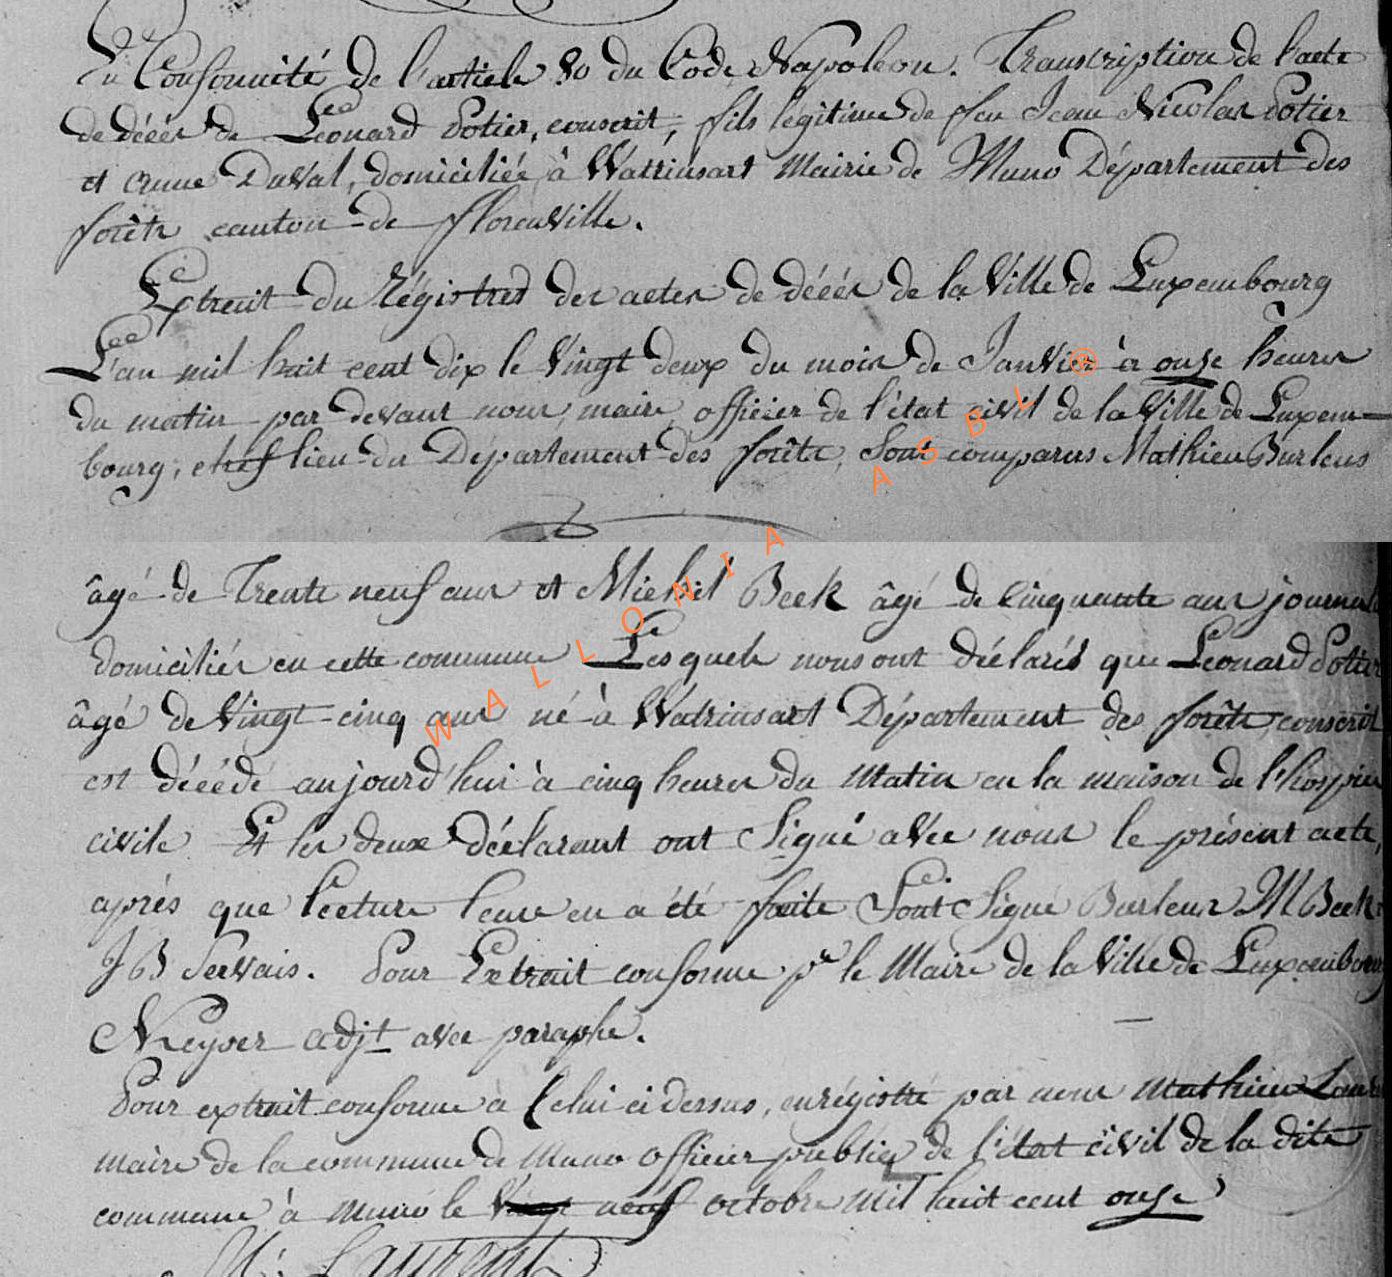 En Conformité de l'article 80 du Code Napoleon. Transcription de l'acte
de décés de Léonard Potier, conscrit, fils légitime de feu Jean Nicolas Potier
et anne Duval, domiciliée à Watrinsart Mairie de Muno Département des
forêts canton de florenville.
Extrait du Régistres des actes de décés de la Ville de Luxembourg
L'an mil huit cent dix le Vingt deux du mois de Janvier à onze heures
du matin par devant nous maire officier de l'état civil de la Ville de Luxem-
bourg, chef lieu du Département des forêts, Sont comparus Mathieu Burleus
âgé de Trente neuf ans et Michel Beck âgé de Cinquante ans journal
domiciliés en cette commune Lesquels nous ont déclarés que Léonard Potier
âgé de Vingt-cinq ans né à Watrinsart Département des forêts conscrit
est décédé aujourd'hui à cinq heures du Matin en la maison de l'hospice
civile Et les deux déclarant ont Signé avec nous le présent acte,
aprés que lecture leur en a été faite Sont Signé Burleus M Beck
J B Servais. Pour Extrait conforme pr le Maire de la Ville de Luxembourg
Neyser adjt avec paraphe.
Pour extrait conforme à Celui ci dessus, enrégistré par nous Mathieu Laur
maire de la commune de Muno officier public de l'état civil de la dite
commune à Muno le Vingt neuf octobre mil huit cent onze
M. Laurent
WALLONIA ASBL ®